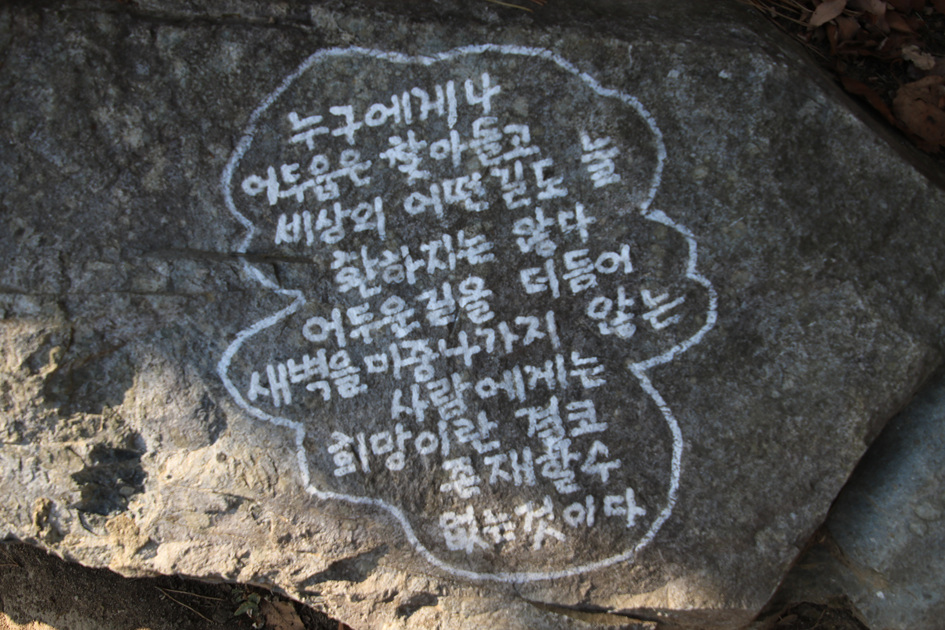 누구에게나
어두움은 찾아들고
세상의 어떤길도 늘
환하지는 않다
어두운길을 더듬어
새벽을마중나가지 않는
사람에게는
희망이란 결코
존재할수
없는것이다